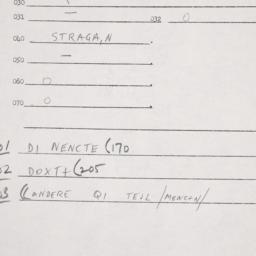 030
031 — 032 0
040 STRAGA,N
050 —
060 0
070 0
01 DI NENCTE (170
02 DOXT+ (205
03 (ANDERE QI TEIL /MENC+N/